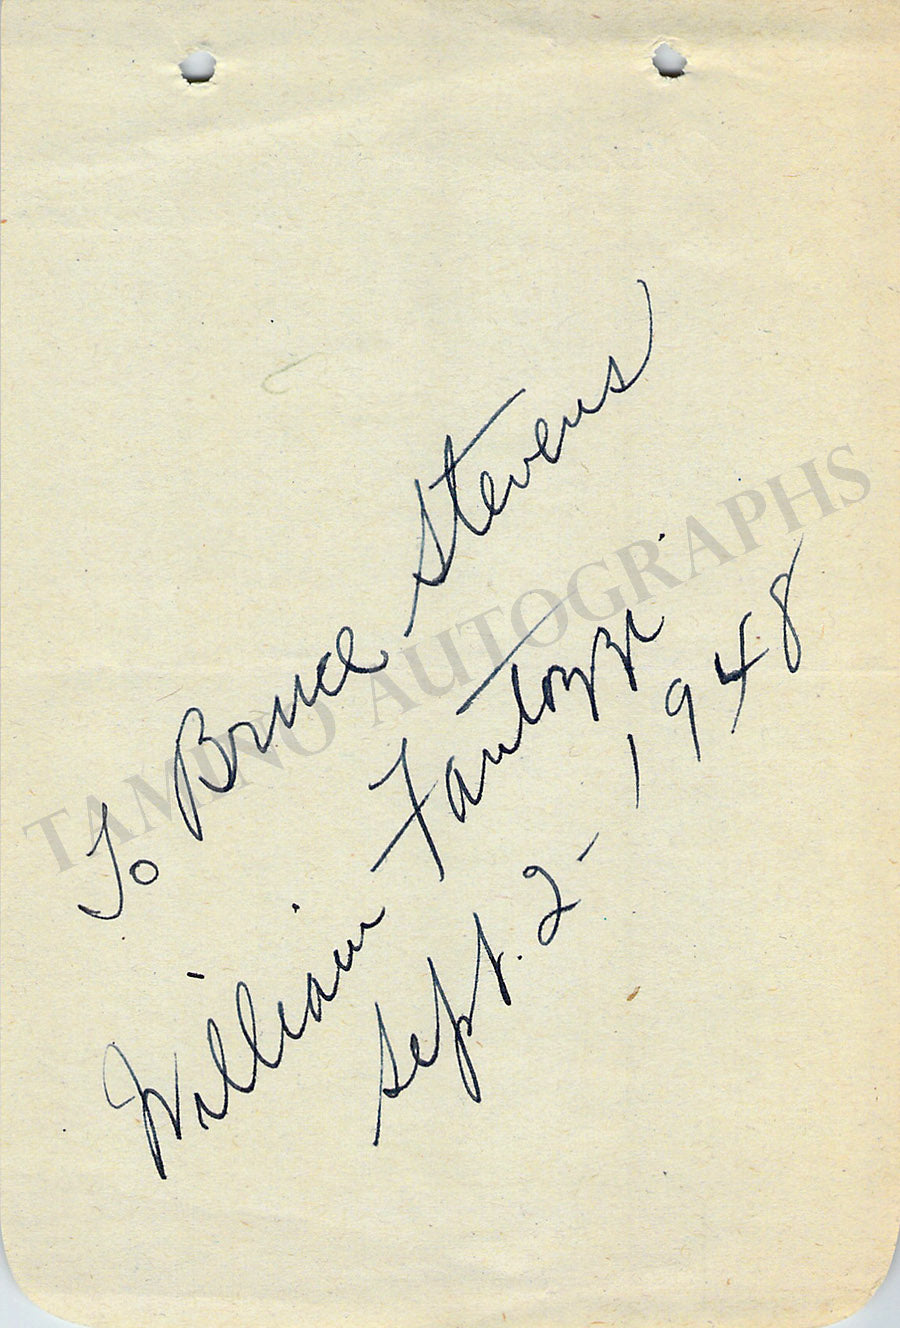 To Bruce Stevens
William Fantozzi
Sept. 2 - 1948
TAMINO AUTOGRAPHS